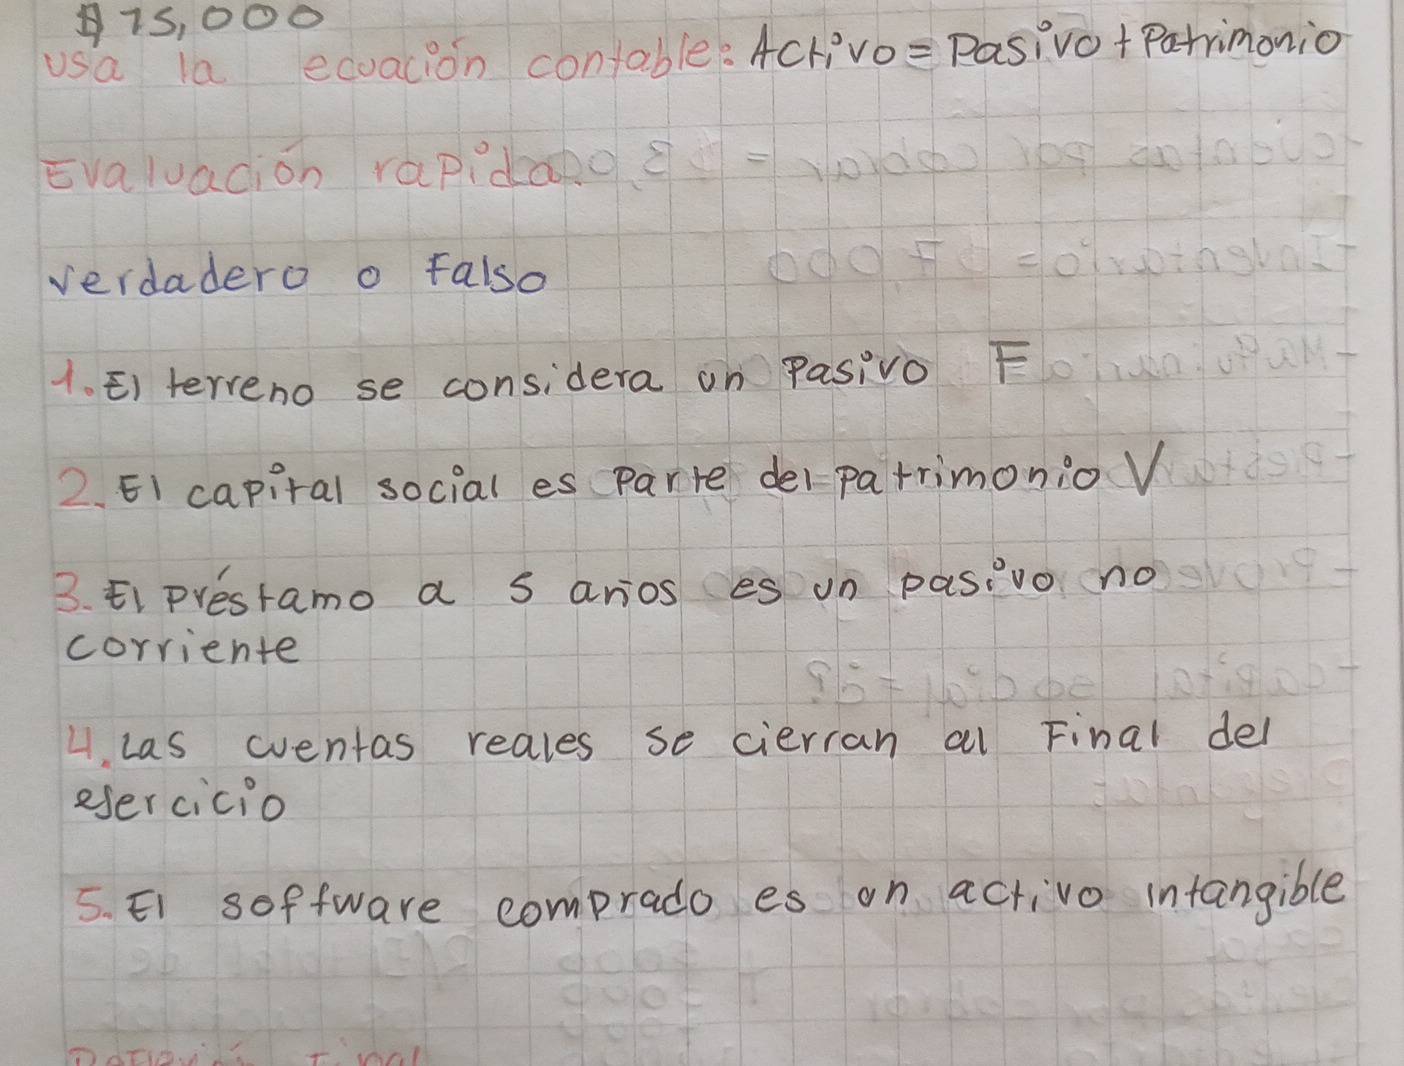 $ 75,000
usa la ecuación contable: Activo = Pasivo + Patrimonio
Evaluación rapida.
verdadero o falso
1. El terreno se considera un Pasivo F
2. El capital social es parte del patrimonio V
3. El préstamo a 5 años es un pasivo no
corriente
4. Las cuentas reales se cierran al Final del
ejercicio
5. El software comprado es un activo intangible